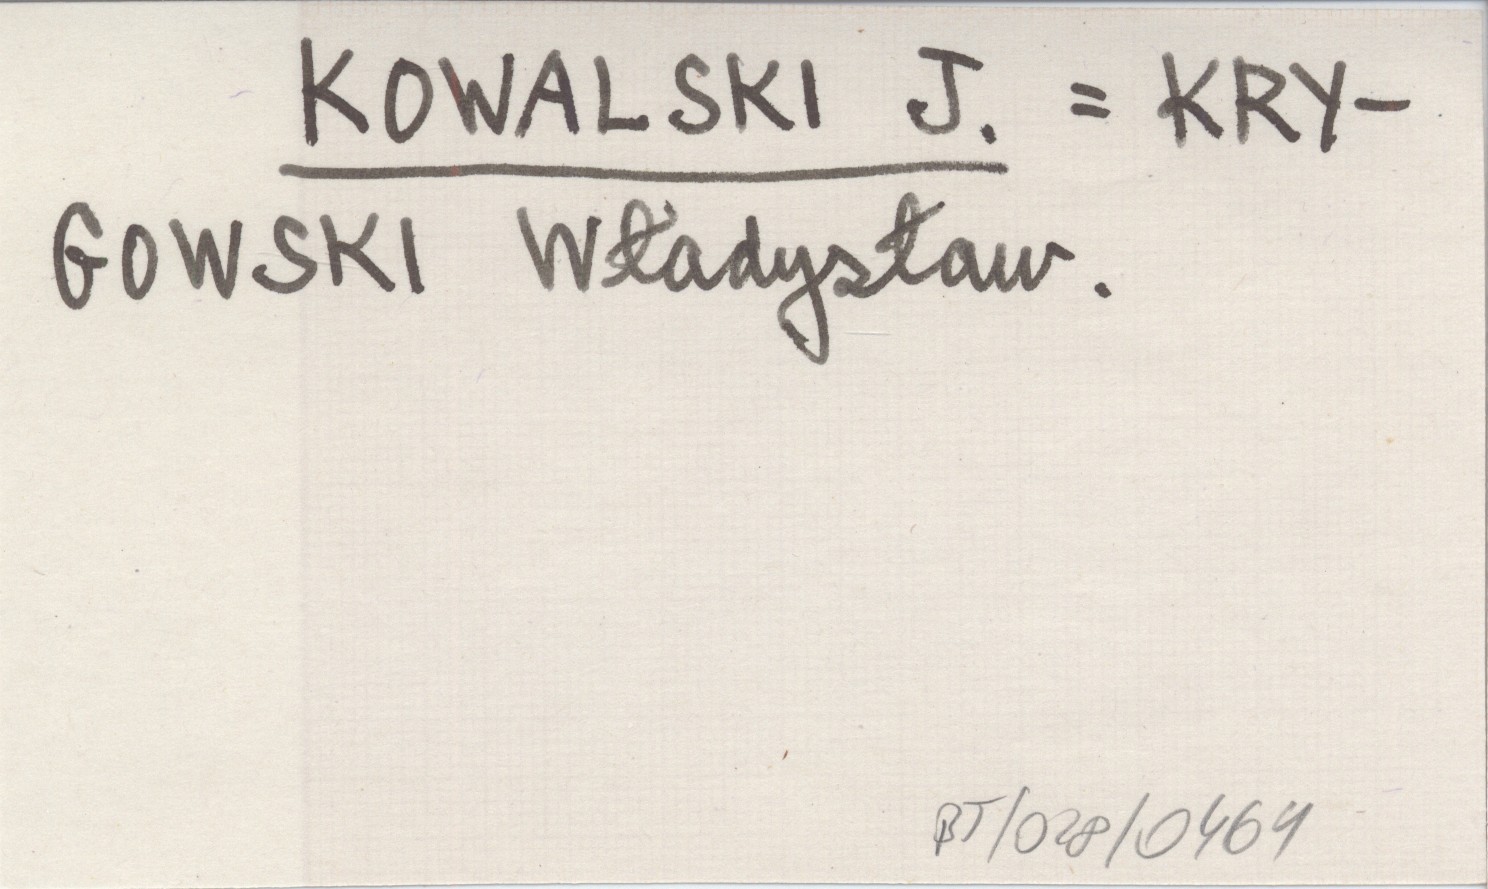 KOWALSKI J. = KRY-
GOWSKI Władysław.
BT/028/0464